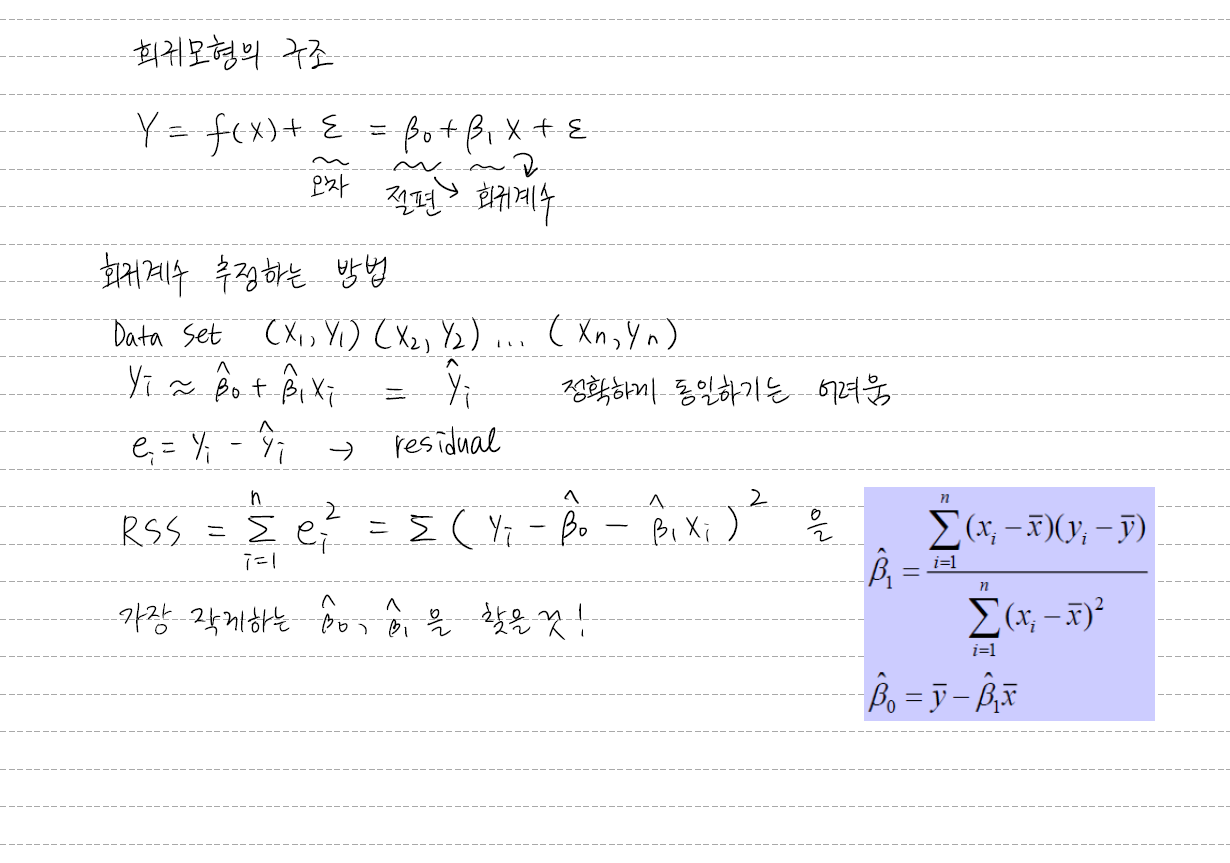 회귀모형의 구조
Y = f(X) + ε = β₀ + β₁ X + ε
오차 절편 회귀계수
회귀계수 추정하는 방법
Data Set (X₁, Y₁) (X₂, Y₂) ... (Xn, Yn)
Yi ≈ β̂₀ + β̂₁ Xi = Ŷi 정확하게 동일하기는 어려움
ei = Yi - Ŷi → residual
RSS = Σ(i=1..n) ei² = Σ ( Yi - β̂₀ - β̂₁ Xi )² 을
가장 작게하는 β̂₀, β̂₁ 을 찾을 것!
β̂₁ = Σ(i=1..n) (xi − x̄)(yi − ȳ) / Σ(i=1..n) (xi − x̄)²
β̂₀ = ȳ − β̂₁x̄